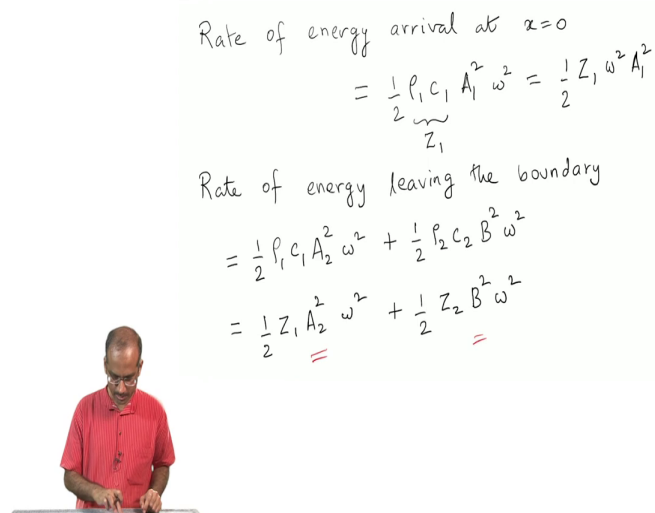 Rate of energy arrival at x=0
= 1/2 ρ₁ c₁ A₁² ω² = 1/2 Z₁ ω² A₁²
Z₁
Rate of energy leaving the boundary
= 1/2 ρ₁ c₁ A₂² ω² + 1/2 ρ₂ c₂ B² ω²
= 1/2 Z₁ A₂² ω² + 1/2 Z₂ B² ω²